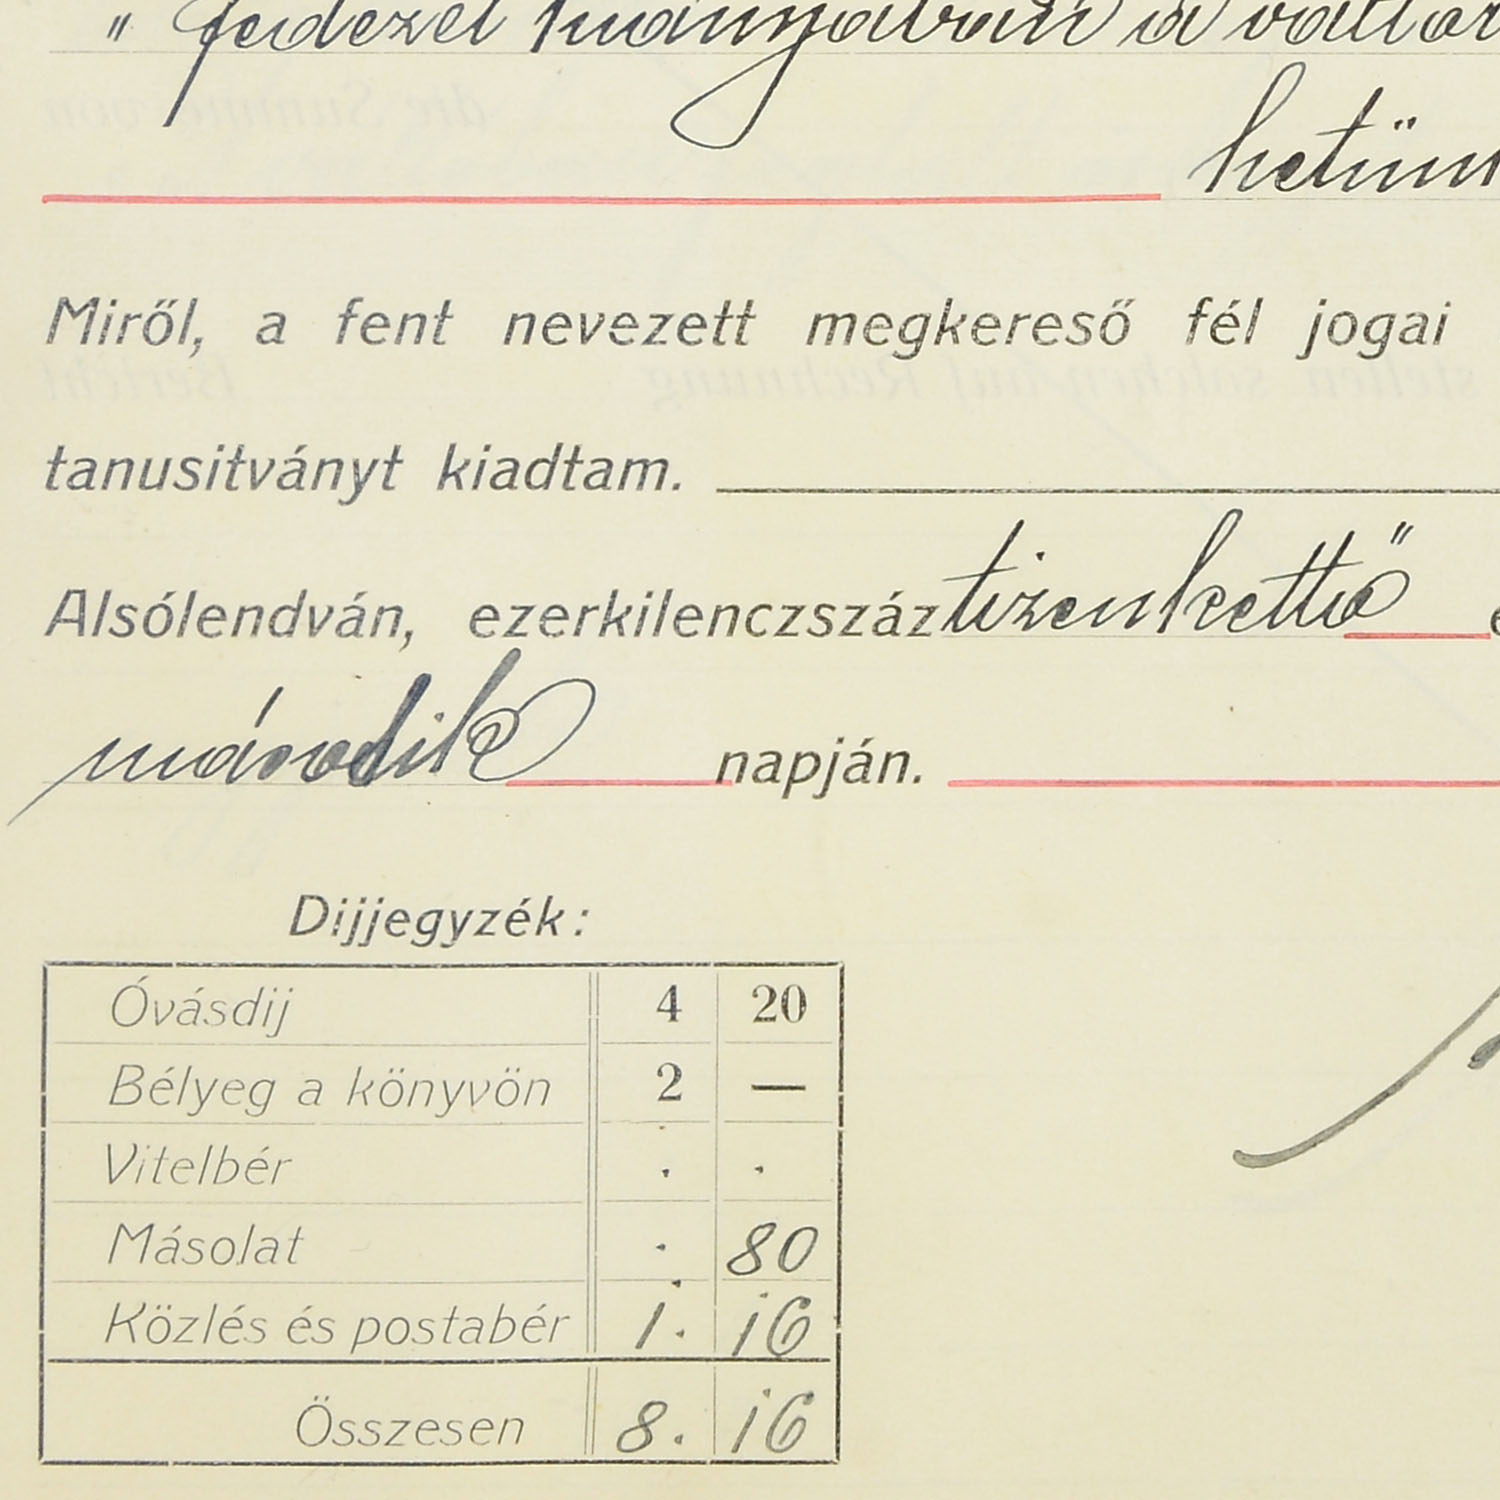 " fedezet hiányában a váltót
hetünk
Miről, a fent nevezett megkereső fél jogai
tanusitványt kiadtam.
Alsólendván, ezerkilenczszáz tizenkettő
második napján.
Dijjegyzék:
Óvásdij 4 20
Bélyeg a könyvön 2 —
Vitelbér . .
Másolat . 80
Közlés és postabér 1. 16
Összesen 8. 16